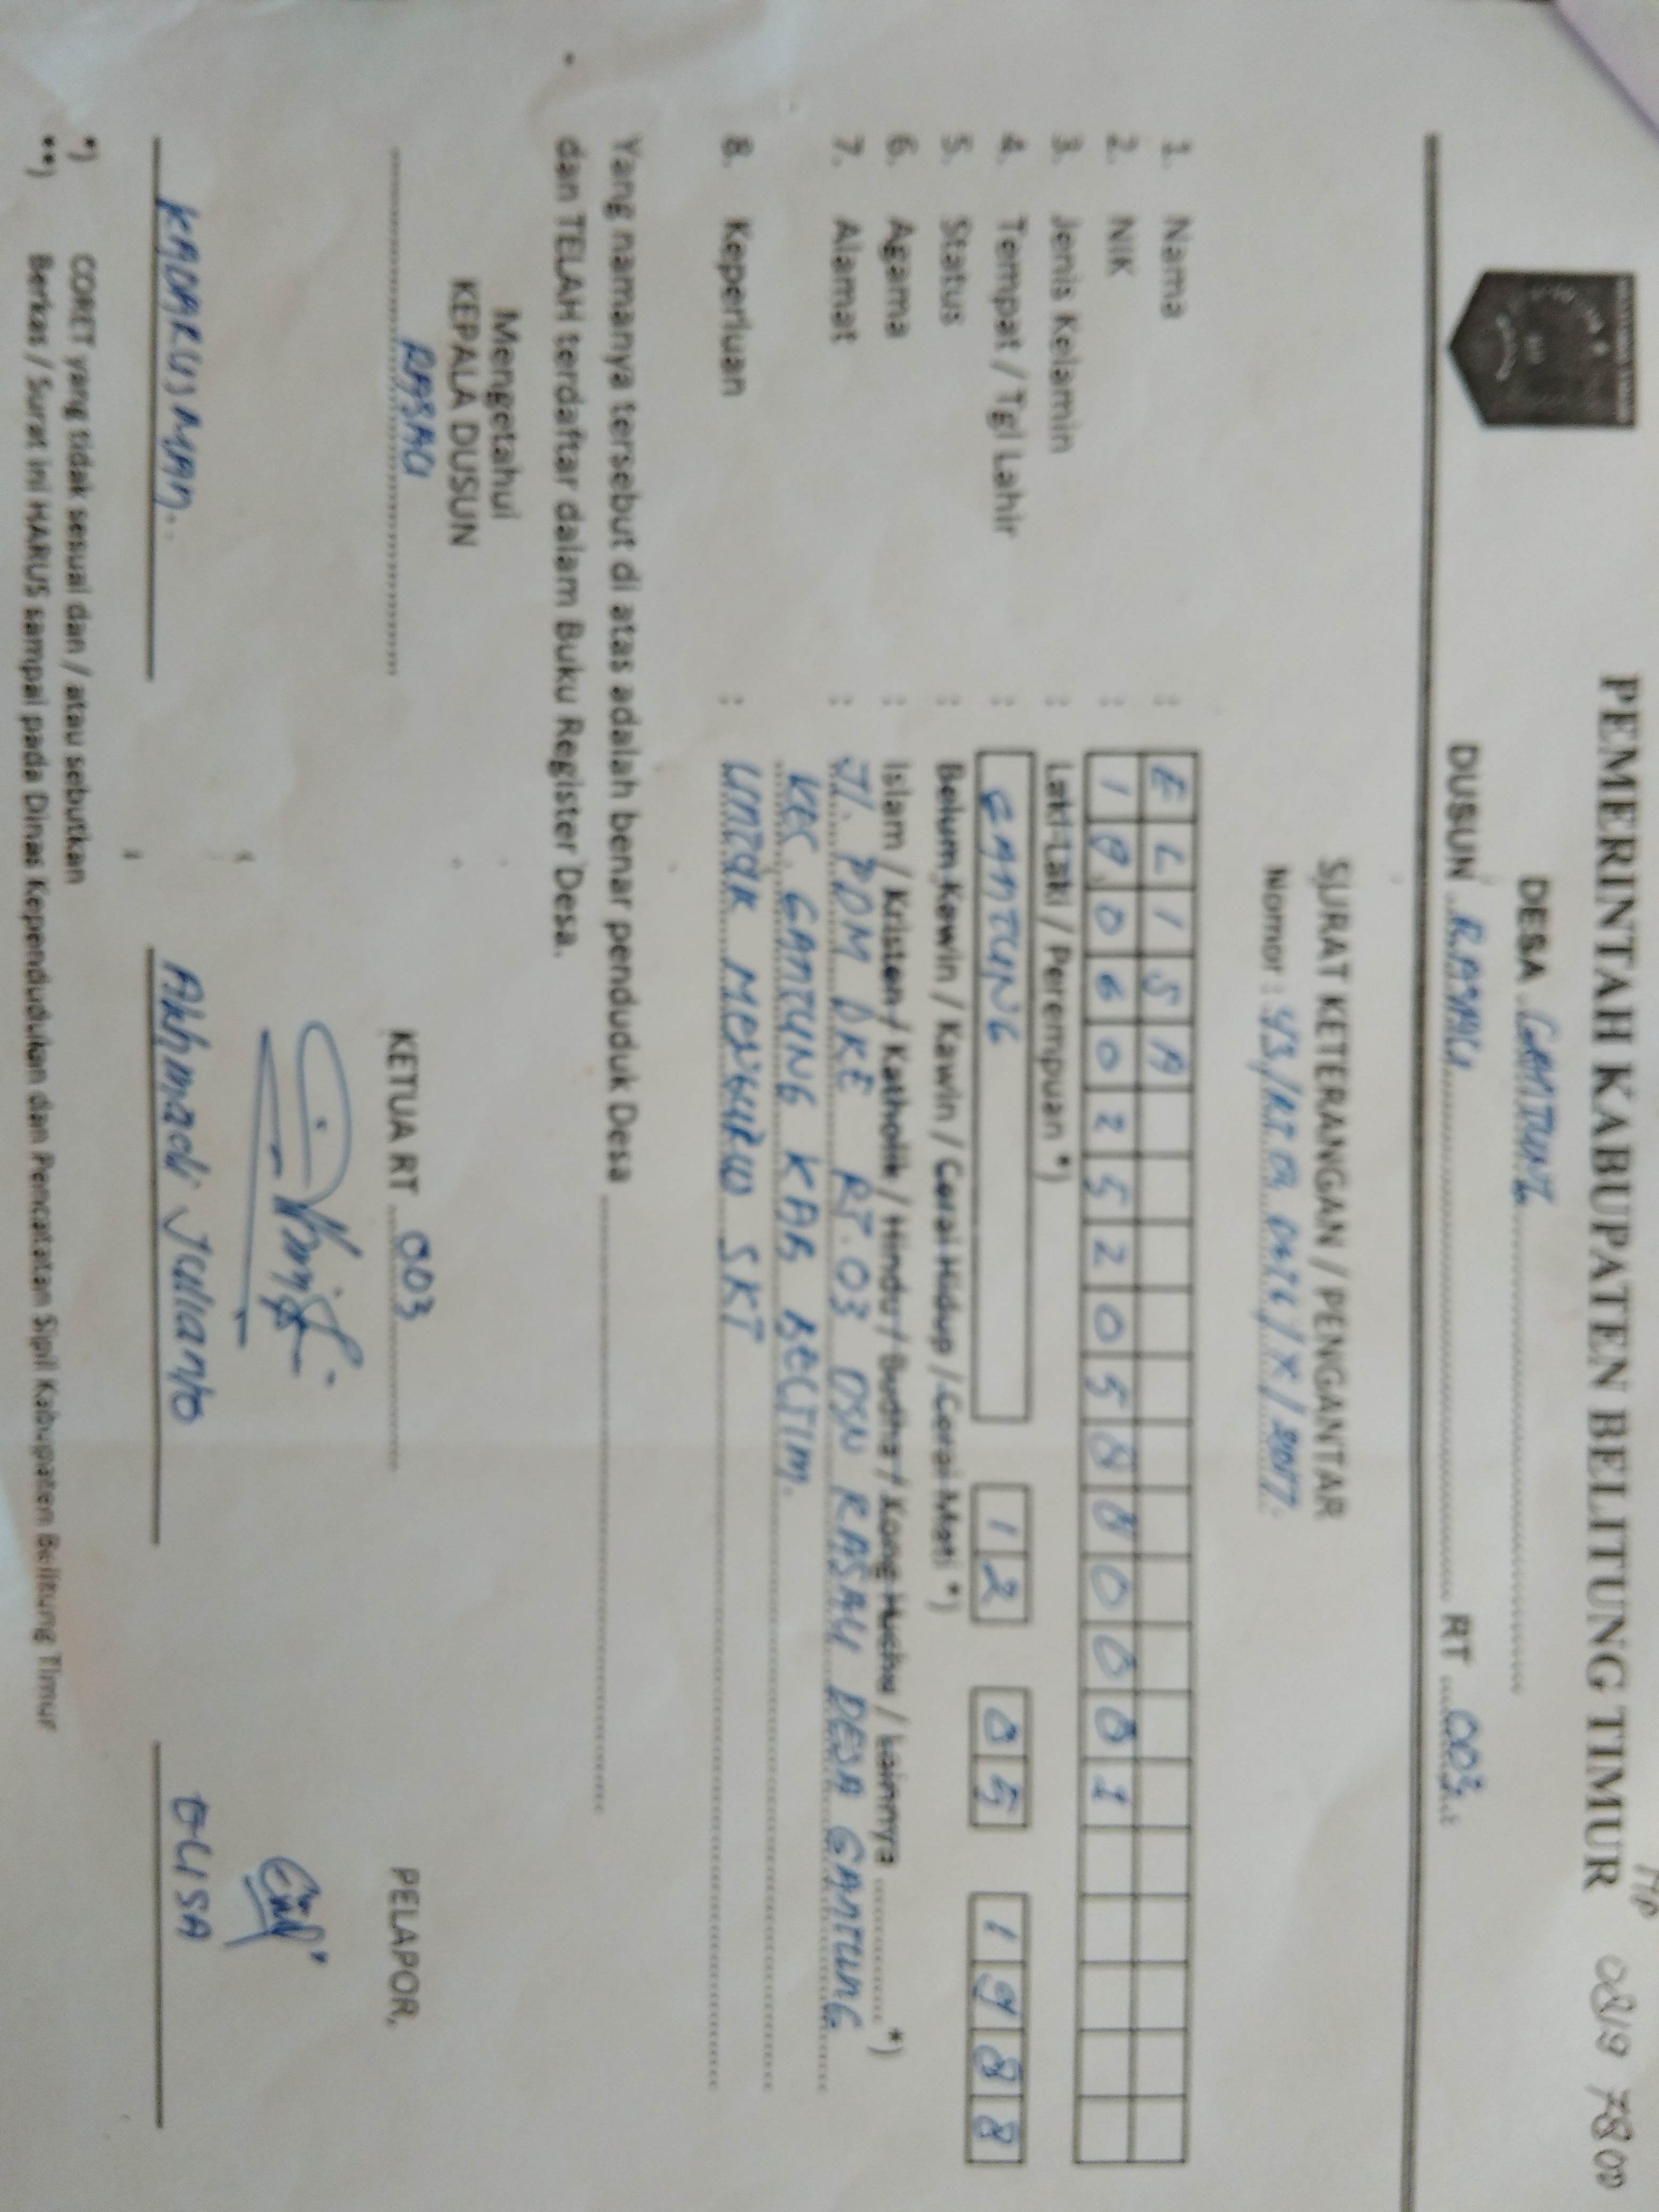 HP 0819 7800
PEMERINTAH KABUPATEN BELITUNG TIMUR
DESA GANTUNG
DUSUN RASAU RT 003
SURAT KETERANGAN / PENGANTAR
Nomor : 43 / RT 03 / X / 2017
1. Nama : ELISA
2. NIK : 1906025205880001
3. Jenis Kelamin : Laki-Laki / Perempuan *)
4. Tempat / Tgl Lahir : GANTUNG 12 05 1988
5. Status : Belum Kawin / Kawin / Cerai Hidup / Cerai Mati *)
6. Agama : Islam / Kristen / Katholik / Hindu / Budha / Kong Huchu / Lainnya *)
7. Alamat : Jl. PDM DKE RT.03 DSN RASAU DESA GANTUNG
KEC. GANTUNG KAB BELTIM.
8. Keperluan : UNTUK MENGURUS SKT
Yang namanya tersebut di atas adalah benar penduduk Desa
dan TELAH terdaftar dalam Buku Register Desa.
Mengetahui
KEPALA DUSUN KETUA RT 003 PELAPOR,
RASAU
KADARUSMAN. Akhmadi Julianto ELISA
*) CORET yang tidak sesuai dan / atau sebutkan
**) Berkas / Surat ini HARUS sampai pada Dinas Kependudukan dan Pencatatan Sipil Kabupaten Belitung Timur